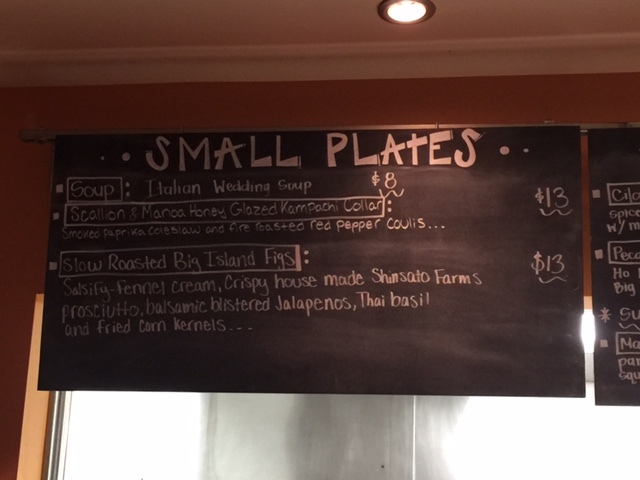 SMALL PLATES
Soup: Italian Wedding Soup $8
Scallion & Manoa Honey Glazed Kampachi Collar: $13
Smoked paprika coleslaw and fire roasted red pepper coulis...
Slow Roasted Big Island Figs: $13
Salsify-Fennel cream, Crispy house made Shinsato Farms
prosciutto, balsamic blistered Jalapenos, Thai basil
and fried corn kernels...
w/ m
Ho
Big
* Su
Ma
par
squ